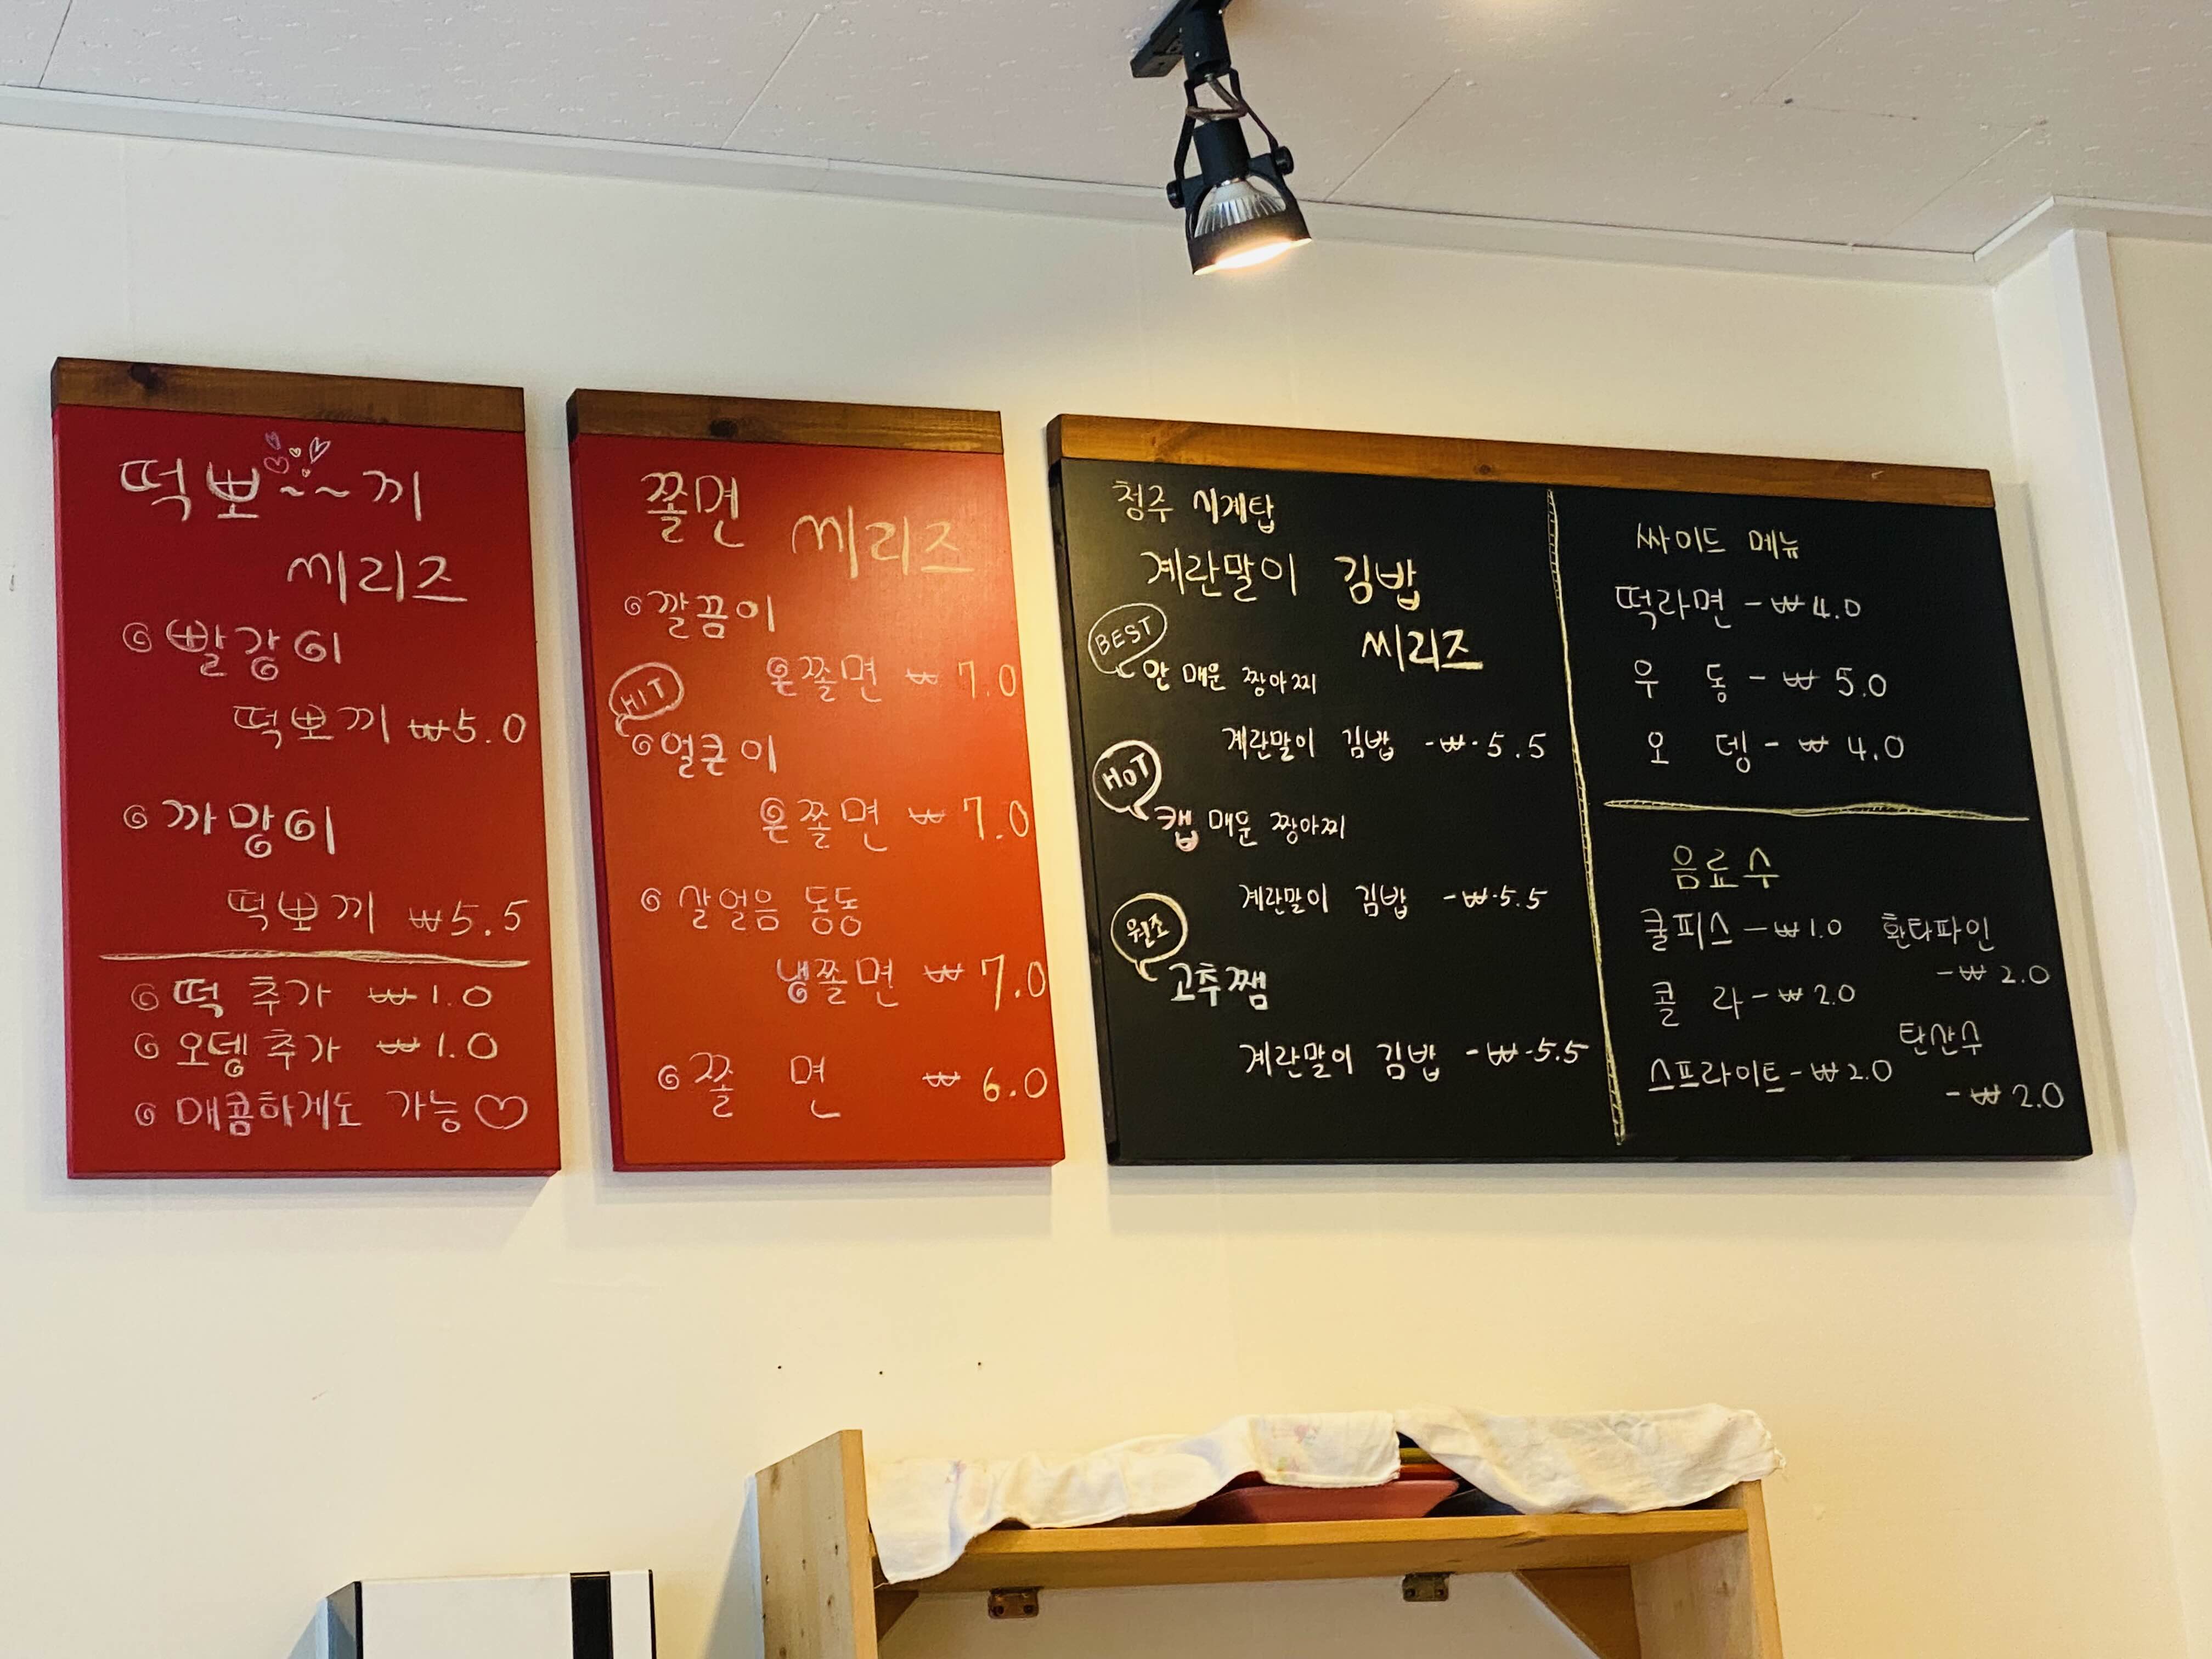 떡뽀~~끼
씨리즈
빨강이
떡뽀끼 ₩5.0
까망이
떡뽀끼 ₩5.5
떡 추가 ₩1.0
오뎅 추가 ₩1.0
매콤하게도 가능♡
쫄면 씨리즈
깔끔이
온쫄면 ₩7.0
HIT
얼큰이
온쫄면 ₩7.0
살얼음 동동
냉쫄면 ₩7.0
쫄 면 ₩6.0
청주 시계탑
계란말이 김밥
씨리즈
BEST
안 매운 짱아찌
계란말이 김밥 -₩-5.5
HOT
캡 매운 짱아찌
계란말이 김밥 -₩-5.5
원조
고추쨈
계란말이 김밥 -₩-5.5
싸이드 메뉴
떡라면 -₩4.0
우 동 -₩5.0
오 뎅 -₩4.0
음료수
쿨피스 -₩1.0
콜 라 -₩2.0
스프라이트 -₩2.0
환타파인
-₩2.0
탄산수
-₩2.0